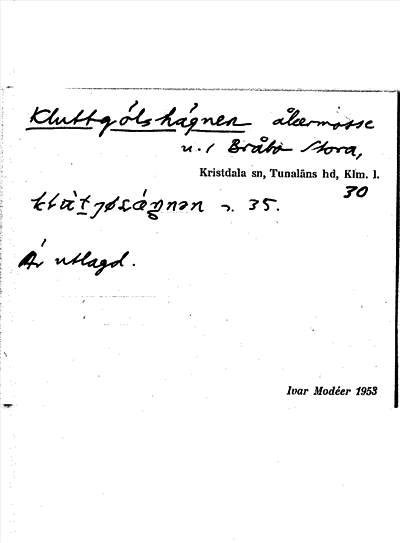 Kluttgölshágnen åkermosse
u. / Bråbo Stora,
Kristdala sn, Tunaläns hd, Klm. l.
30
35.
Är utlagd.
Ivar Modéer 1953